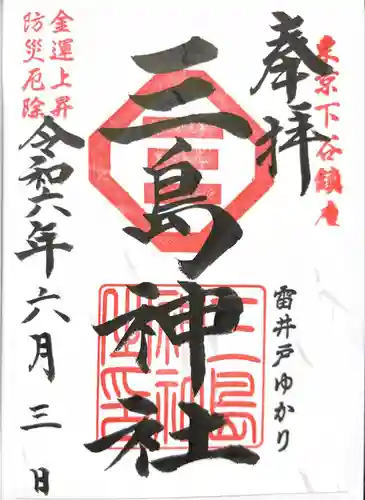 東京下谷鎮座
奉拝
雷井戸ゆかり
三島神社
金運上昇
防災厄除
令和六年六月三日